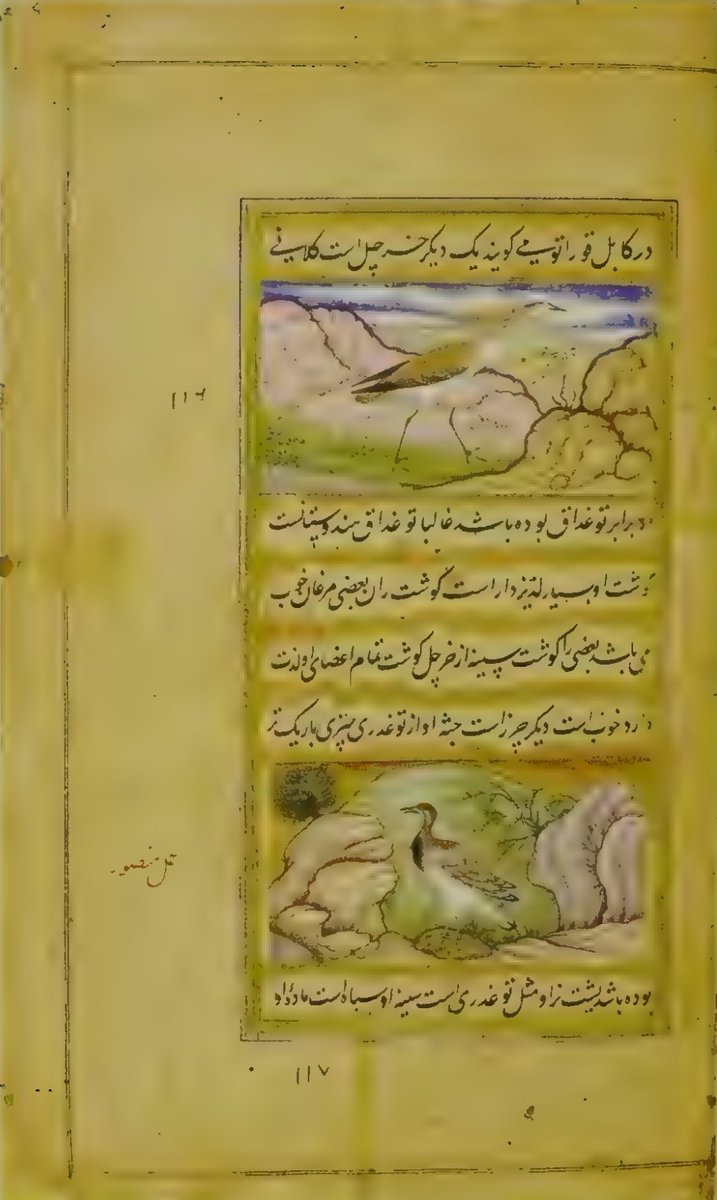 در کابل قوراتو میگویند یک دیگر خرچل است کلانی
۱۱۶
برابر توغداق بوده باشد غالبا توغداق هندوستانست
گوشت او بسیار لذیزدار است گوشت ران بعضی مرغان خوب
می باشد بعضی را گوشت سینه از خرچل گوشت تمام اعضای او لذت
دارد خوب است دیگر چرز است جثه او از توغدری چیزی باریک تر
عمل منصور
بوده باشد پشت نر او مثل توغدری است سینه او سیاه است ماده او
۱۱۷